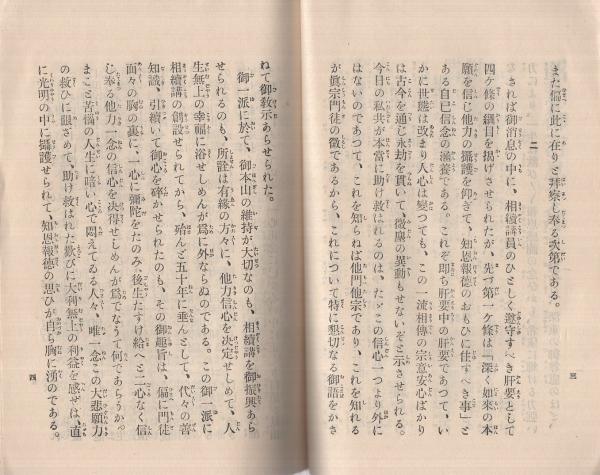 また偏に此に在りと拜察し奉る次第である。
二
されば御消息の中に、相續講員のひとしく遵守すべき肝要として
四ケ條の綱目を揭げさせられたが、先づ第一ケ條は「深く如來の本
願を信じ他力の攝護を仰ぎて、知恩報德のおもひに住すべき事」と
ある自己信念の涵養である。これぞ卽ち肝要中の肝要であつて、い
かに世態は改まり人心は變つても、この一流相傳の宗意安心ばかり
は古今を通じ永劫を貫いて、微塵の異動もせないぞと示させられる。
今日の私共が本當に助け救はれるのは、たゞこの信心一つより外に
はないのであつて、これを知らねば他門他宗であり、これを知れる
が眞宗門徒の徵であるから、これについて特に懇切なる御語をかさ
三
ねて御敎示あらせられた。
御一派に於て、御本山の維持が大切なのも、相續講を御振興あら
せられるのも、所詮は有緣の方々に、他力信心を決定せしめて、人
生無上の幸福に浴せしめんが爲に外ならぬのである。この御一派に
相續講の創設せられてから、殆んど五十年に垂んとして、代々の善
知識、引續いて御心を碎かせられたのも、その御趣旨は、偏に門徒
面々の胸の裏に、一心に彌陀をたのみ、後生たすけ給へと二心なく信
じ奉る他力一念の信心を決得せしめんが爲でなうて何であらうか。
まこと苦惱の人生に暗い心で悶えてゐる人々、唯一念この大悲願力
の救ひに眼ざめて、助け救はれた歡びに大利無上の利益を感ぜば、直
に光明の中に攝護せられて、知恩報德の思ひが自ら胸に湧のである。
四